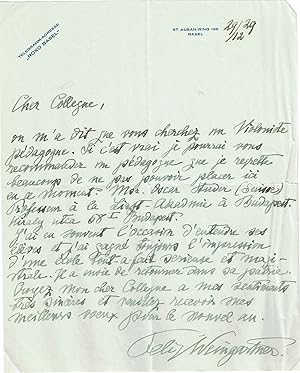 TELEGRAMM-ADRESSE
ST. ALBAN-RING 186
BASEL
29/12 29
Cher Collegue,
on m'a dit que vous cherchez un Violoniste
pédagogue. Si c'est vrai je pourrai vous
recommander un pédagogue que je regrette
beaucoup de ne pas pouvoir placer ici
en ce moment. Mos. Oscar Studer (Suisse)
Professeur à la Akadémie à Budapest.
utca 68 Budapest.
J'ai eu souvent l'occasion d'entendre ses
élèves et j'ai gagné toujours l'impression
d'une école tout a fait serieuse et magi-
strale. Il a de retourner dans sa patrie.
Croyez mon cher Collegue a mes sentiments
très sincères et veuillez recevoir mes
meilleurs voeux pour le nouvel an.
Felix Weingartner.